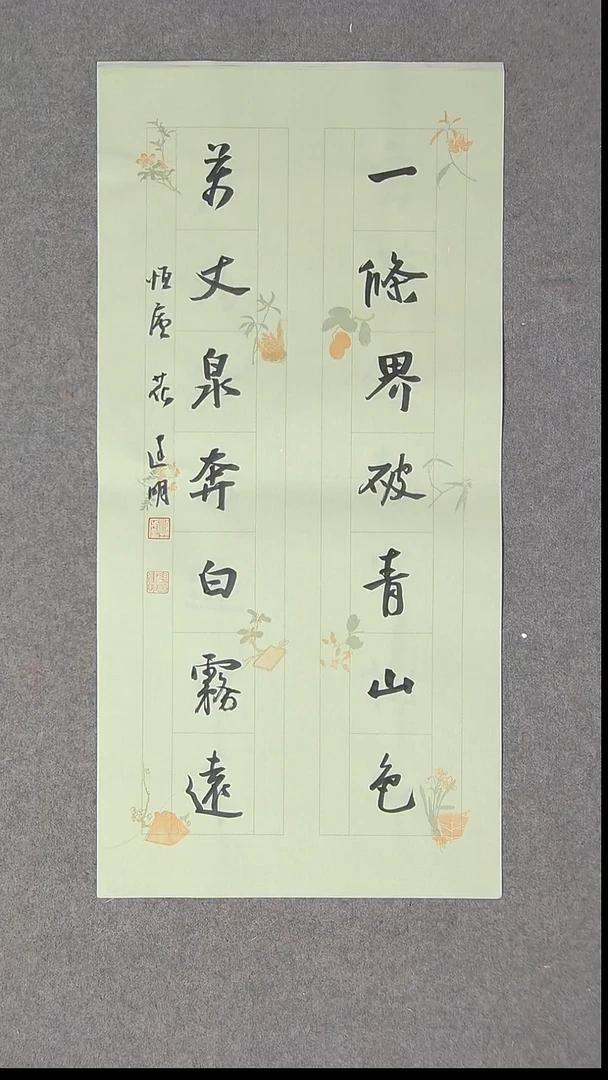 一條界破青山色
萬丈泉奔白霧遠
恒廬 花 逢明